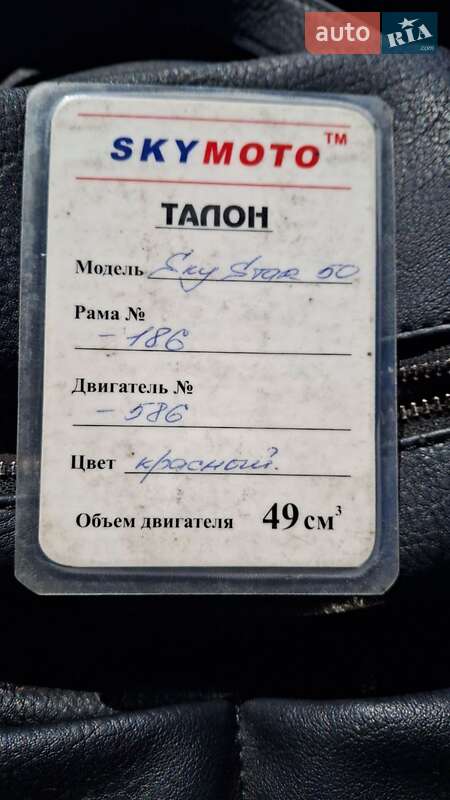 auto RIA.com
SKYMOTO™
ТАЛОН
Модель Sky Star 50
Рама №
-186
Двигатель №
-586
Цвет красный.
Объем двигателя 49 см³